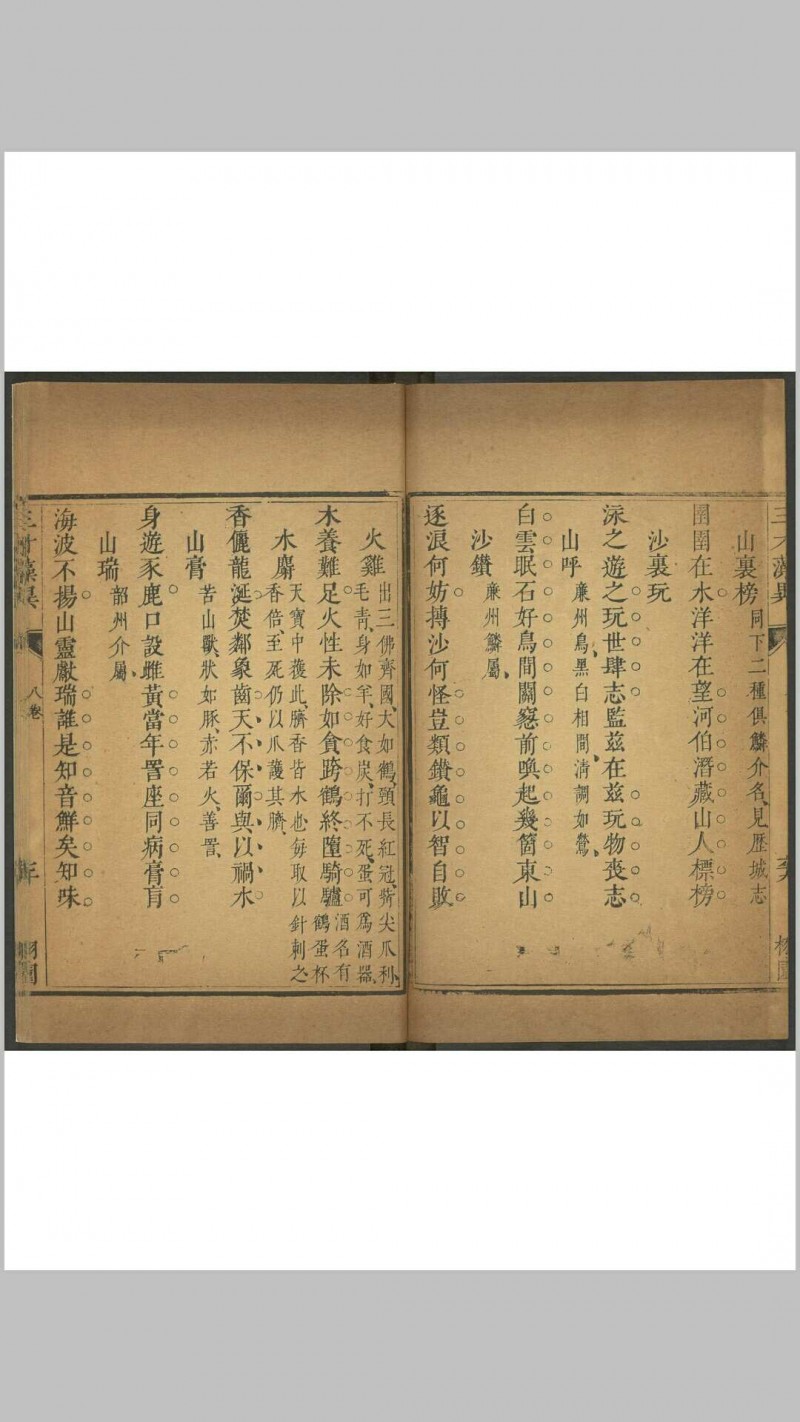 山裏榜 同下二種俱鱗介名見歷城志
圉圉在水洋洋在望河伯潛藏山人標榜
沙裏玩
泳之遊之玩世肆志監茲在茲玩物喪志
山呼 廉州鳥黑白相間清調如鶯
白雲眠石好鳥間關窓前喚起幾箇東山
沙鑽 廉州鱗屬
逐浪何妨摶沙何怪豈類鑽龜以智自敗
火雞 出三佛齊國大如鶴頭長紅冠觜尖爪利
毛青身如羊好食炭打不死蛋可為酒器
木養難足火性未除如貪跨鶴終墮騎驢 酒名有
鶴蛋杯
水麝 天寶中獲此臍香皆水也每取以針刺之
香倍至死仍以爪護其臍
香儷龍涎焚鄰象齒天不保爾與以禍水
山膏 苦山獸狀如豚赤若火善詈
身遊豕鹿口設雌黃當年詈座同病膏肓
山瑞 韶州介屬
海波不揚山靈獻瑞誰是知音鮮矣知味
三才藻異
八卷